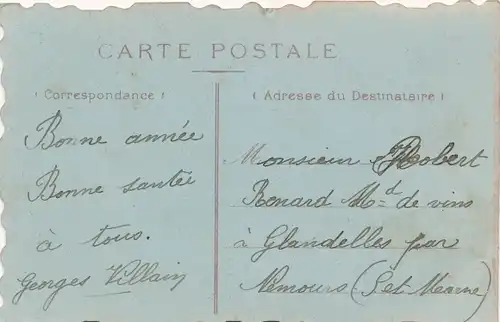 CARTE POSTALE
(Correspondance)
Bonne année
Bonne santée
à tous.
Georges Villain
(Adresse du Destinataire)
Monsieur Robert
Renard Md de vins
à Glandelles par
Nemours (S et Marne)